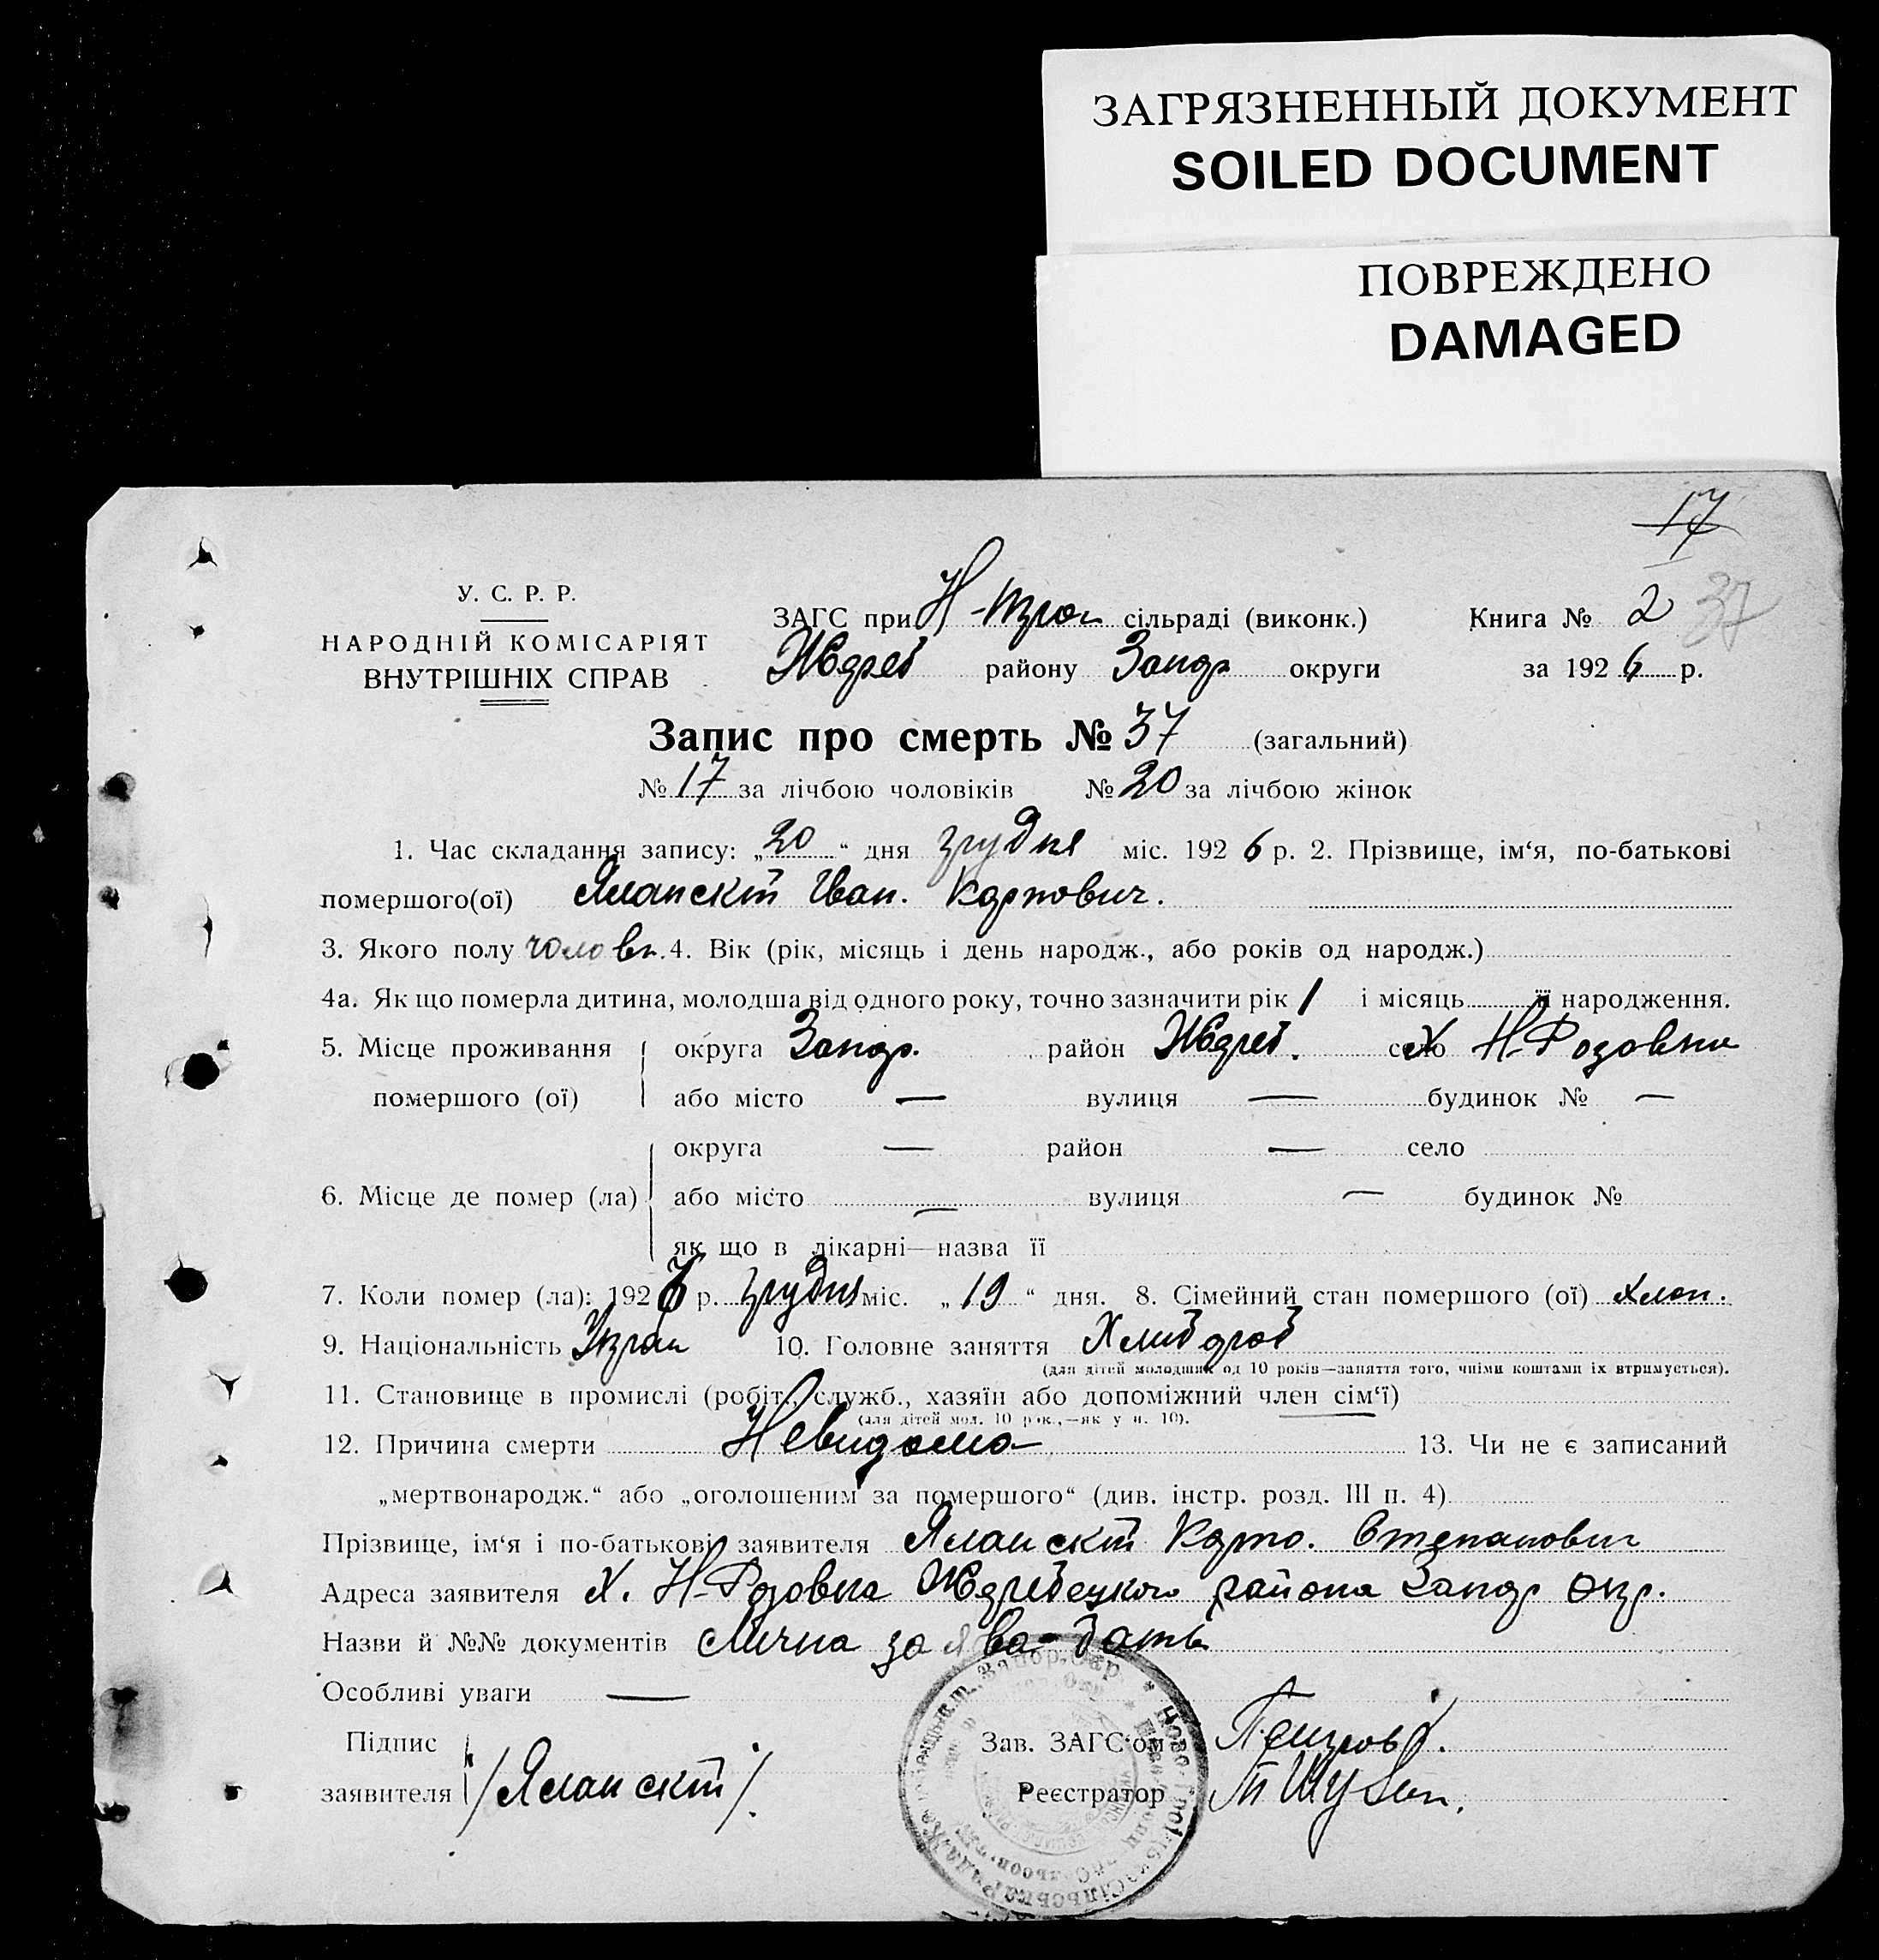 ЗАГРЯЗНЕННЫЙ ДОКУМЕНТ
SOILED DOCUMENT
ПОВРЕЖДЕНО
DAMAGED
17
У. С. Р. Р.
НАРОДНІЙ КОМІСАРІЯТ
ВНУТРІШНІХ СПРАВ
ЗАГС при Н- сільраді (виконк.) Книга № 2 37
Жереб району Запор округи за 1926 р.
Запис про смерть № 37 (загальний)
№ 17 за лічбою чоловіків № 20 за лічбою жінок
1. Час складання запису: „20“ дня грудня міс. 1926 р. 2. Прізвище, ім‘я, по-батькові
помершого(ої) Яланскій Іван. Карпович.
3. Якого полу чолов. 4. Вік (рік, місяць і день народж., або років од народж.)
4а. Як що померла дитина, молодша від одного року, точно зазначити рік 1 і місяць її народження.
5. Місце проживання округа Запор. район Жереб. село х Н-Розовка
помершого (ої) або місто — вулиця — будинок № —
округа — район — село
6. Місце де помер (ла) або місто — вулиця — будинок №
як що в лікарні—назва її
7. Коли помер (ла): 1926 р. грудня міс. „19“ дня. 8. Сімейний стан помершого (ої) хлоп.
9. Національність Украін 10. Головне заняття Хлибороб
(для дітей молодших од 10 років—заняття того, чиїми коштами їх втримується).
11. Становище в промислі (робіт., служб., хазяїн або допоміжний член сім‘ї) —
(для дітей мол. 10 рок.,—як у п. 10).
12. Причина смерти Невидома 13. Чи не є записаний
„мертвонародж.“ або „оголошеним за помершого“ (див. інстр. розд. III п. 4)
Прізвище, ім‘я і по-батькові заявителя Яланскій Карпо. Степанович
Адреса заявителя х. Н-Розовка Жеребецкого района Запор окр.
Назви й №№ документів Лична заява- батька
Особливі уваги —
Підпис Зав. ЗАГС‘ом
заявителя /Яланскій/. Реєстратор